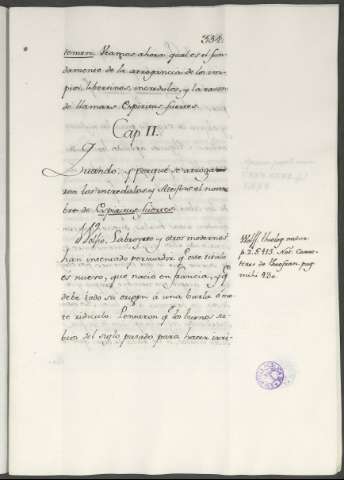 334
temen. Veamos ahora qual es el fun-
damento de la arrogancia de los im-
pios, libertinos, incredulos, y la razon
de llamarse Espiritus fuertes.
Cap II.
Quando, y porqué se arroga-
ron los incredulos y Ateistas el nom-
bre de Espiritus fuertes.
112
Wolfio, y otros modernos
han intentado persuadir, que este titulo
es nuevo, que nacio en francia, y q
debe todo su origen á una burla ó mo-
te ridiculo. Pensaron q los buenos sa-
bios del siglo pasado para hacer irri-
Wolff. theolog. natur.
p. 2. § 413 Not.
de pag
420.